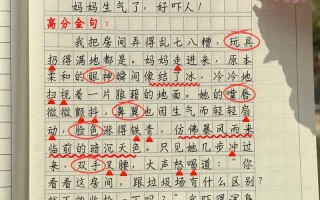 妈妈生气了，好吓人！
高分金句：
我把房间弄得乱七八糟，玩具
扔得满地都是。妈妈走进来，原本
柔和的眼神瞬间像结了冰，冷冷地
扫视着一片狼藉的地面。她的嘴唇
微微颤抖，鼻翼也因生气而轻轻扇
动，脸色涨得铁青，仿佛暴风雨来
临前的暗沉天色。只见她几步冲过
来，双手叉腰，大声怒喝道：“你
看看这房间，跟垃圾场有什么区别？